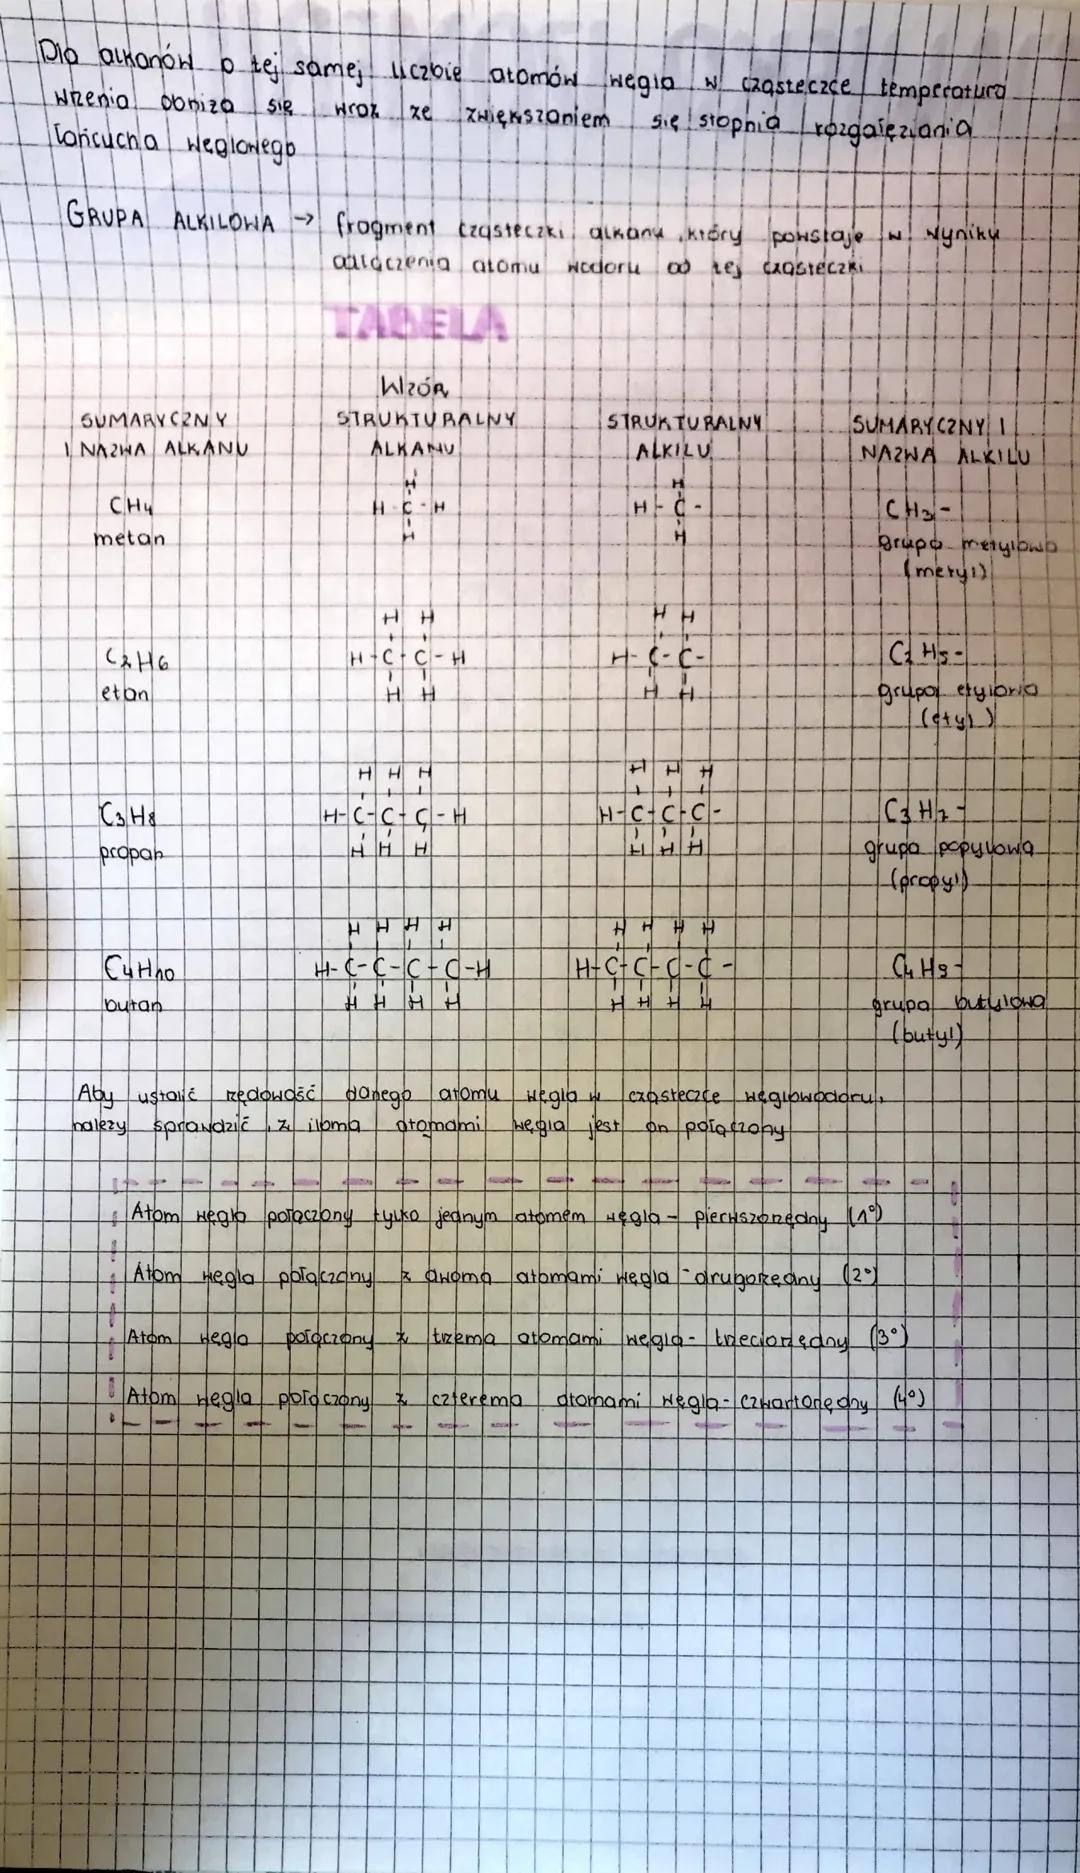 Dla alkanów o tej samej liczbie atomów węgla w cząsteczce temperatura
wrzenia obniża się wraz ze zwiększaniem się stopnia rozgałęziania
łańcucha węglowego
GRUPA ALKILOWA → fragment cząsteczki alkanu, który powstaje w wyniku
odłączenia atomu wodoru od tej cząsteczki
TABELA
WZÓR
SUMARYCZNY STRUKTURALNY STRUKTURALNY SUMARYCZNY I
I NAZWA ALKANU ALKANU ALKILU NAZWA ALKILU
H H
CH4 H-C-H H-C- CH3-
H H
metan grupa metylowa
(metyl)
H H H H
C2H6 H-C-C-H H-C-C- C2H5-
etan H H H H grupa etylowa
(etyl)
H H H H H H
C3H8 H-C-C-C-H H-C-C-C- C3H7-
propan H H H H H H grupa popylowa
(propyl)
H H H H H H H H
C4H10 H-C-C-C-C-H H-C-C-C-C- C4H9-
butan H H H H H H H H grupa butylowa
(butyl)
Aby ustalić rzędowość danego atomu węgla w cząsteczce węglowodoru,
należy sprawdzić, z iloma atomami węgla jest on połączony
Atom węgla połączony tylko jednym atomem węgla - pierwszorzędny (1°)
Atom węgla połączony z dwoma atomami węgla - drugorzędny (2°)
Atom węgla połączony z trzema atomami węgla - trzeciorzędny (3°)
Atom węgla połączony z czterema atomami węgla - czwartorzędny (4°)